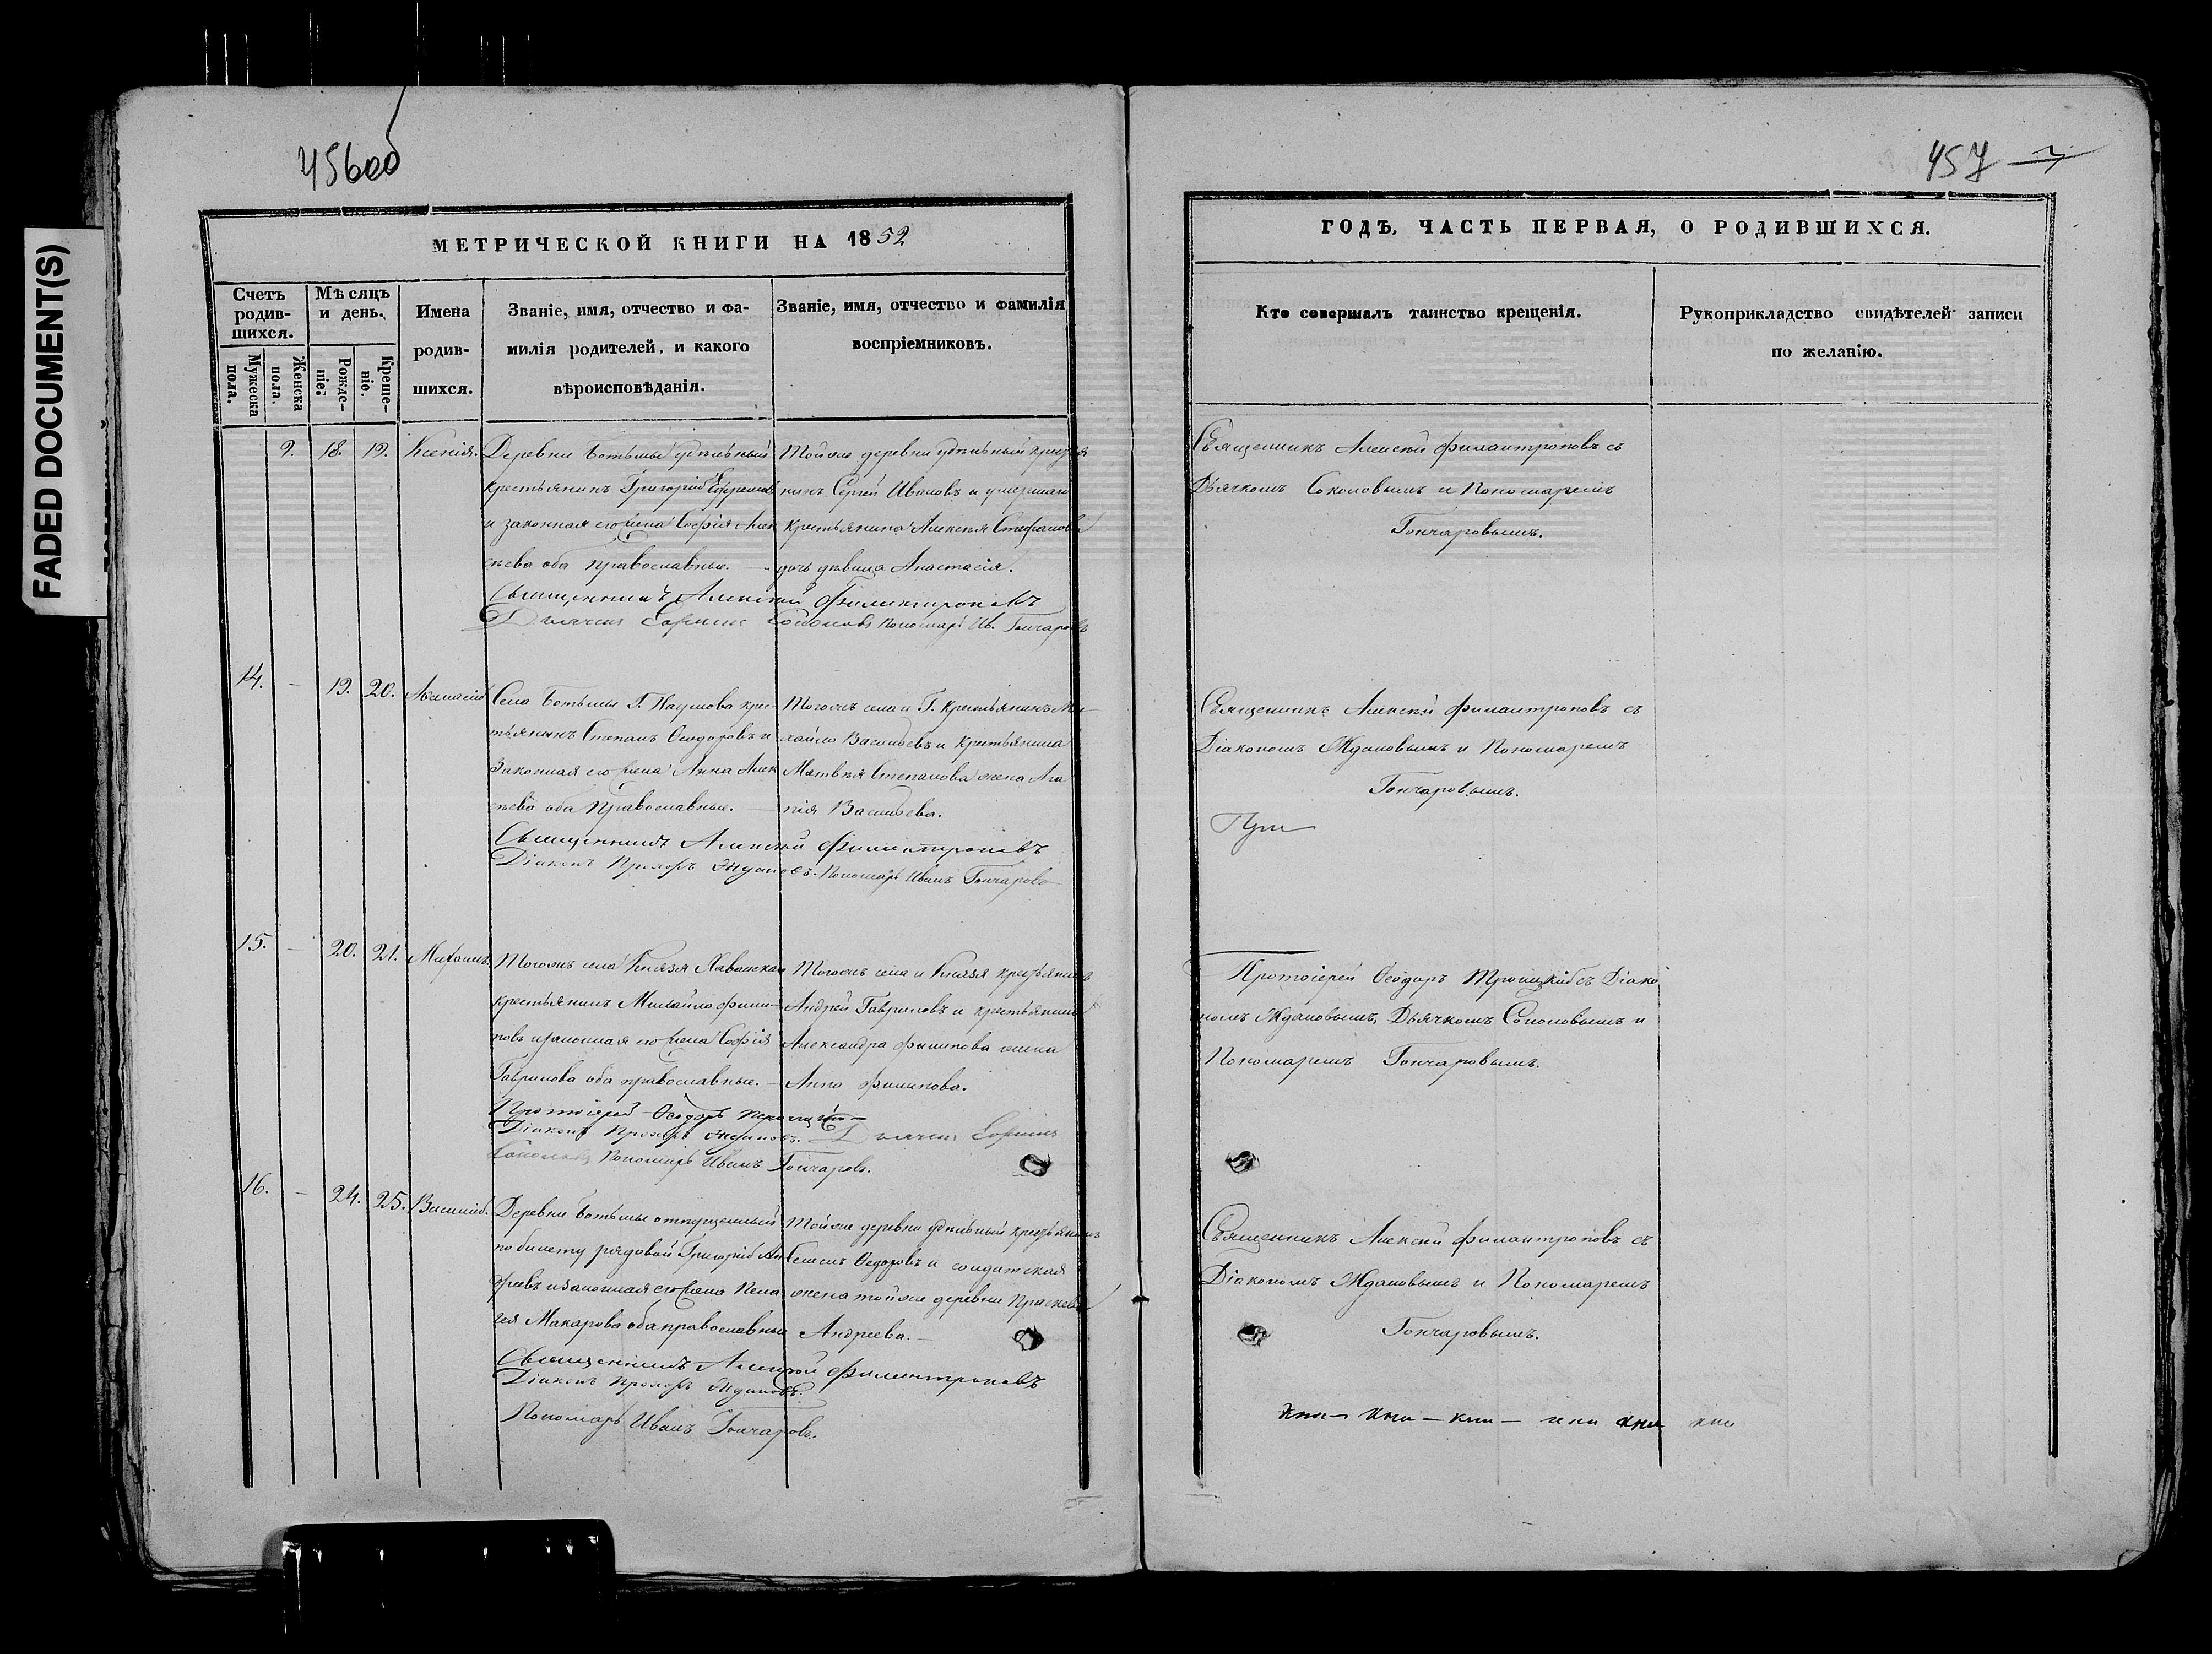 FADED DOCUMENT(S)
456об
457
МЕТРИЧЕСКОЙ КНИГИ НА 1852
ГОДЪ, ЧАСТЬ ПЕРВАЯ, О РОДИВШИХСЯ.
Счетъ родив-шихся.
Мужеска пола.
Женска пола.
Мѣсяцъ и день.
Рожде-ніе.
Креще-ніе.
Имена родив-шихся.
Званіе, имя, отчество и фа-
милія родителей, и какого
вѣроисповѣданія.
Званіе, имя, отчество и фамилія
воспріемниковъ.
Кто совершалъ таинство крещенія.
Рукоприкладство свидѣтелей записи
по желанію.
9. 18. 19. Ксенія.
Деревни Ботьмы удѣльный
крестьянинъ Григорій Ефремовъ
и законная его жена Софія Алек
сѣева оба православные. —
Тойже деревни удѣльный кресья
нинъ Сергей Ивановъ и умершаго
крестьянина Алексѣя Стефанова
дочь дѣвица Анастасія.
Священникъ Алексій Филантроповъ
Дьячекъ Соколовъ Пономарь Ив. Гончаровъ
Священникъ Алексій Филантроповъ съ
Дьячкомъ Соколовымъ и Пономаремъ
Гончаровымъ.
14. — 19. 20. Аѳанасій
Села Ботьмы Г. Наумова крес-
тьянинъ Степанъ Ѳеодоровъ и
законная его жена Анна Алек
сѣева оба Православные. —
Тогожъ села и Г. крестьянинъ Ми-
хайло Васильевъ и крестьянина
Матвѣя Степанова жена Ага
пія Васильева.
Священникъ Алексій Филантроповъ
Діаконъ Прохоръ Ждановъ. Пономарь Иванъ Гончаровъ
Священникъ Алексій Филантроповъ съ
Діакономъ Ждановымъ и Пономаремъ
Гончаровымъ.
15. — 20. 21. Михаилъ.
Тогожъ села Князя Хованскаго
крестьянинъ Михайло Фили-
повъ и законная его жена Софія
Гаврилова оба православные. —
Тогожъ села и Князя кресьянинъ
Андрей Гавриловъ и крестьянина
Александра Филипова жена
Анна Филипова.
Протоіерей Ѳеодоръ
Діаконъ Прохоръ Ждановъ. Дьячекъ
Соколовъ Пономарь Иванъ Гончаровъ.
Протоіерей Ѳеодоръ Троицкій съ Діако
номъ Ждановымъ, Дьячкомъ Соколовымъ и
Пономаремъ Гончаровымъ.
16. — 24. 25. Василій.
Деревни Ботьмы отпущенный
по билету рядовой Григорій Ан
дреевъ и законная его жена Пела
гея Макарова оба православные
Тойже деревни удѣльный кресьянинъ
Семенъ Ѳедоровъ и солдатская
жена тойже деревни Прасковья
Андреева. —
Священникъ Алексій Филантроповъ
Діаконъ Прохоръ Ждановъ.
Пономарь Иванъ Гончаровъ.
Священникъ Алексій Филантроповъ съ
Діакономъ Ждановымъ и Пономаремъ
Гончаровымъ.